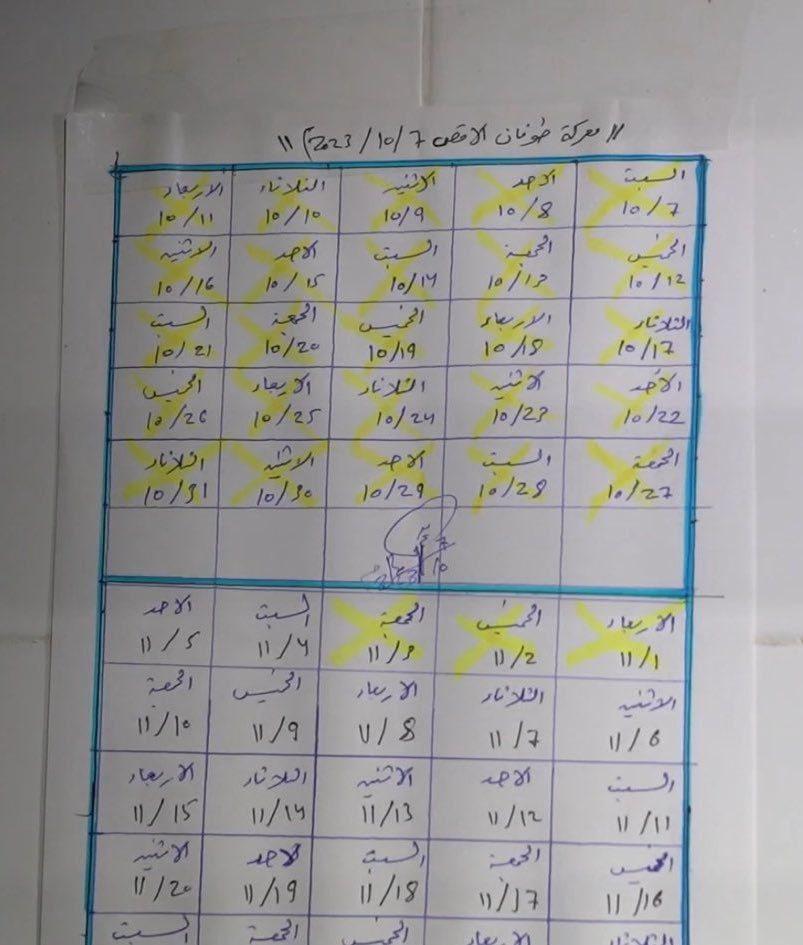 // معركة طوفان الاقصى 2023/10/7م //
السبت الاحد الاثنين الثلاثاء الاربعاء
10/7 10/8 10/9 10/10 10/11
الخميس الجمعة السبت الاحد الاثنين
10/12 10/13 10/14 10/15 10/16
الثلاثاء الاربعاء الخميس الجمعة السبت
10/17 10/18 10/19 10/20 10/21
الأحد الاثنين الثلاثاء الاربعاء الخميس
10/22 10/23 10/24 10/25 10/26
الجمعة السبت الاحد الاثنين الثلاثاء
10/27 10/28 10/29 10/30 10/31
الاربعاء الخميس الجمعة السبت الاحد
11/1 11/2 11/3 11/4 11/5
الاثنين الثلاثاء الاربعاء الخميس الجمعة
11/6 11/7 11/8 11/9 11/10
السبت الاحد الاثنين الثلاثاء الاربعاء
11/11 11/12 11/13 11/14 11/15
الخميس الجمعة السبت الاحد الاثنين
11/16 11/17 11/18 11/19 11/20
الثلاثاء الاربعاء الخميس الجمعة السبت